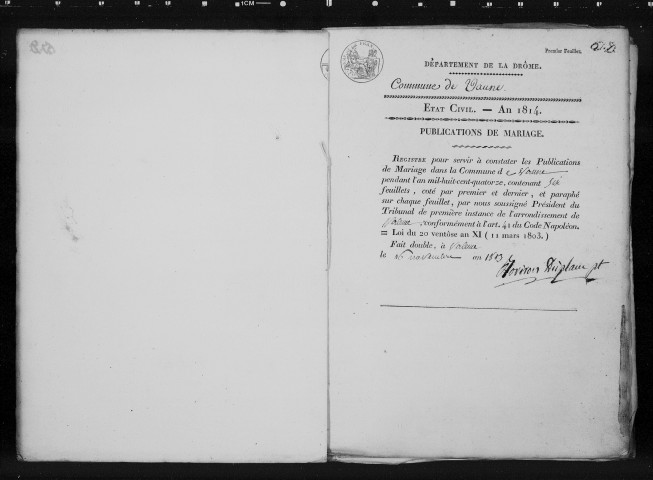 Premier Feuillet.
DÉPARTEMENT DE LA DRÔME.
Commune de
ETAT CIVIL. — AN 1814.
PUBLICATIONS DE MARIAGE.
REGISTRE pour servir à constater les Publications
de Mariage dans la Commune de
pendant l'an mil-huit-cent-quatorze, contenant six
feuillets, coté par premier et dernier, et paraphé
sur chaque feuillet, par nous soussigné Président du
Tribunal de première instance de l'arrondissement de
Valence, conformément à l'art. 41 du Code Napoléon.
= Loi du 20 ventôse an XI (11 mars 1803.)
Fait double, à Valence
le novembre an 1813